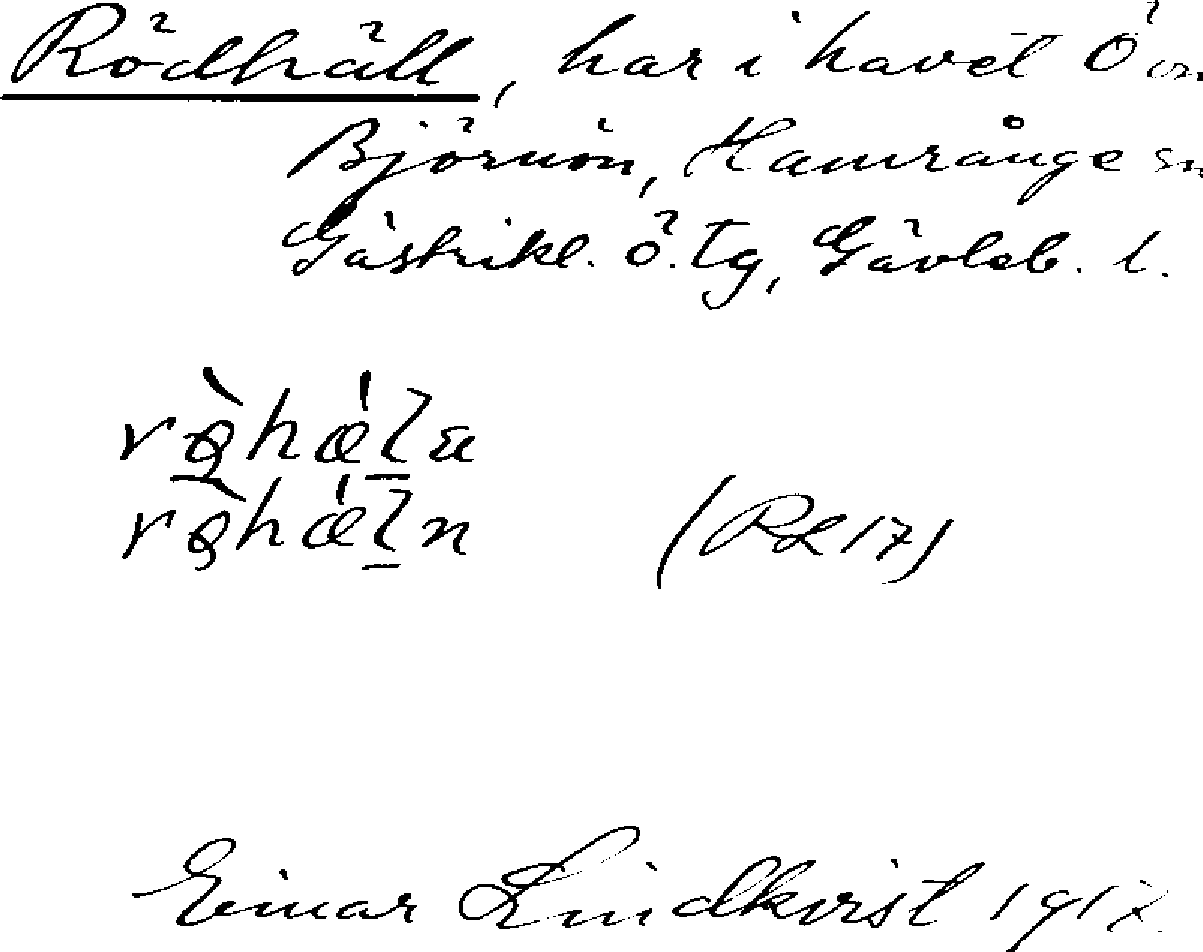 Rödhäll, har i havet Ö om
Björnön, Hamrånge sn
Gästrikl. Ö. tg, Gävleb. l.
(RL 17)
Einar Lindkvist 1917.